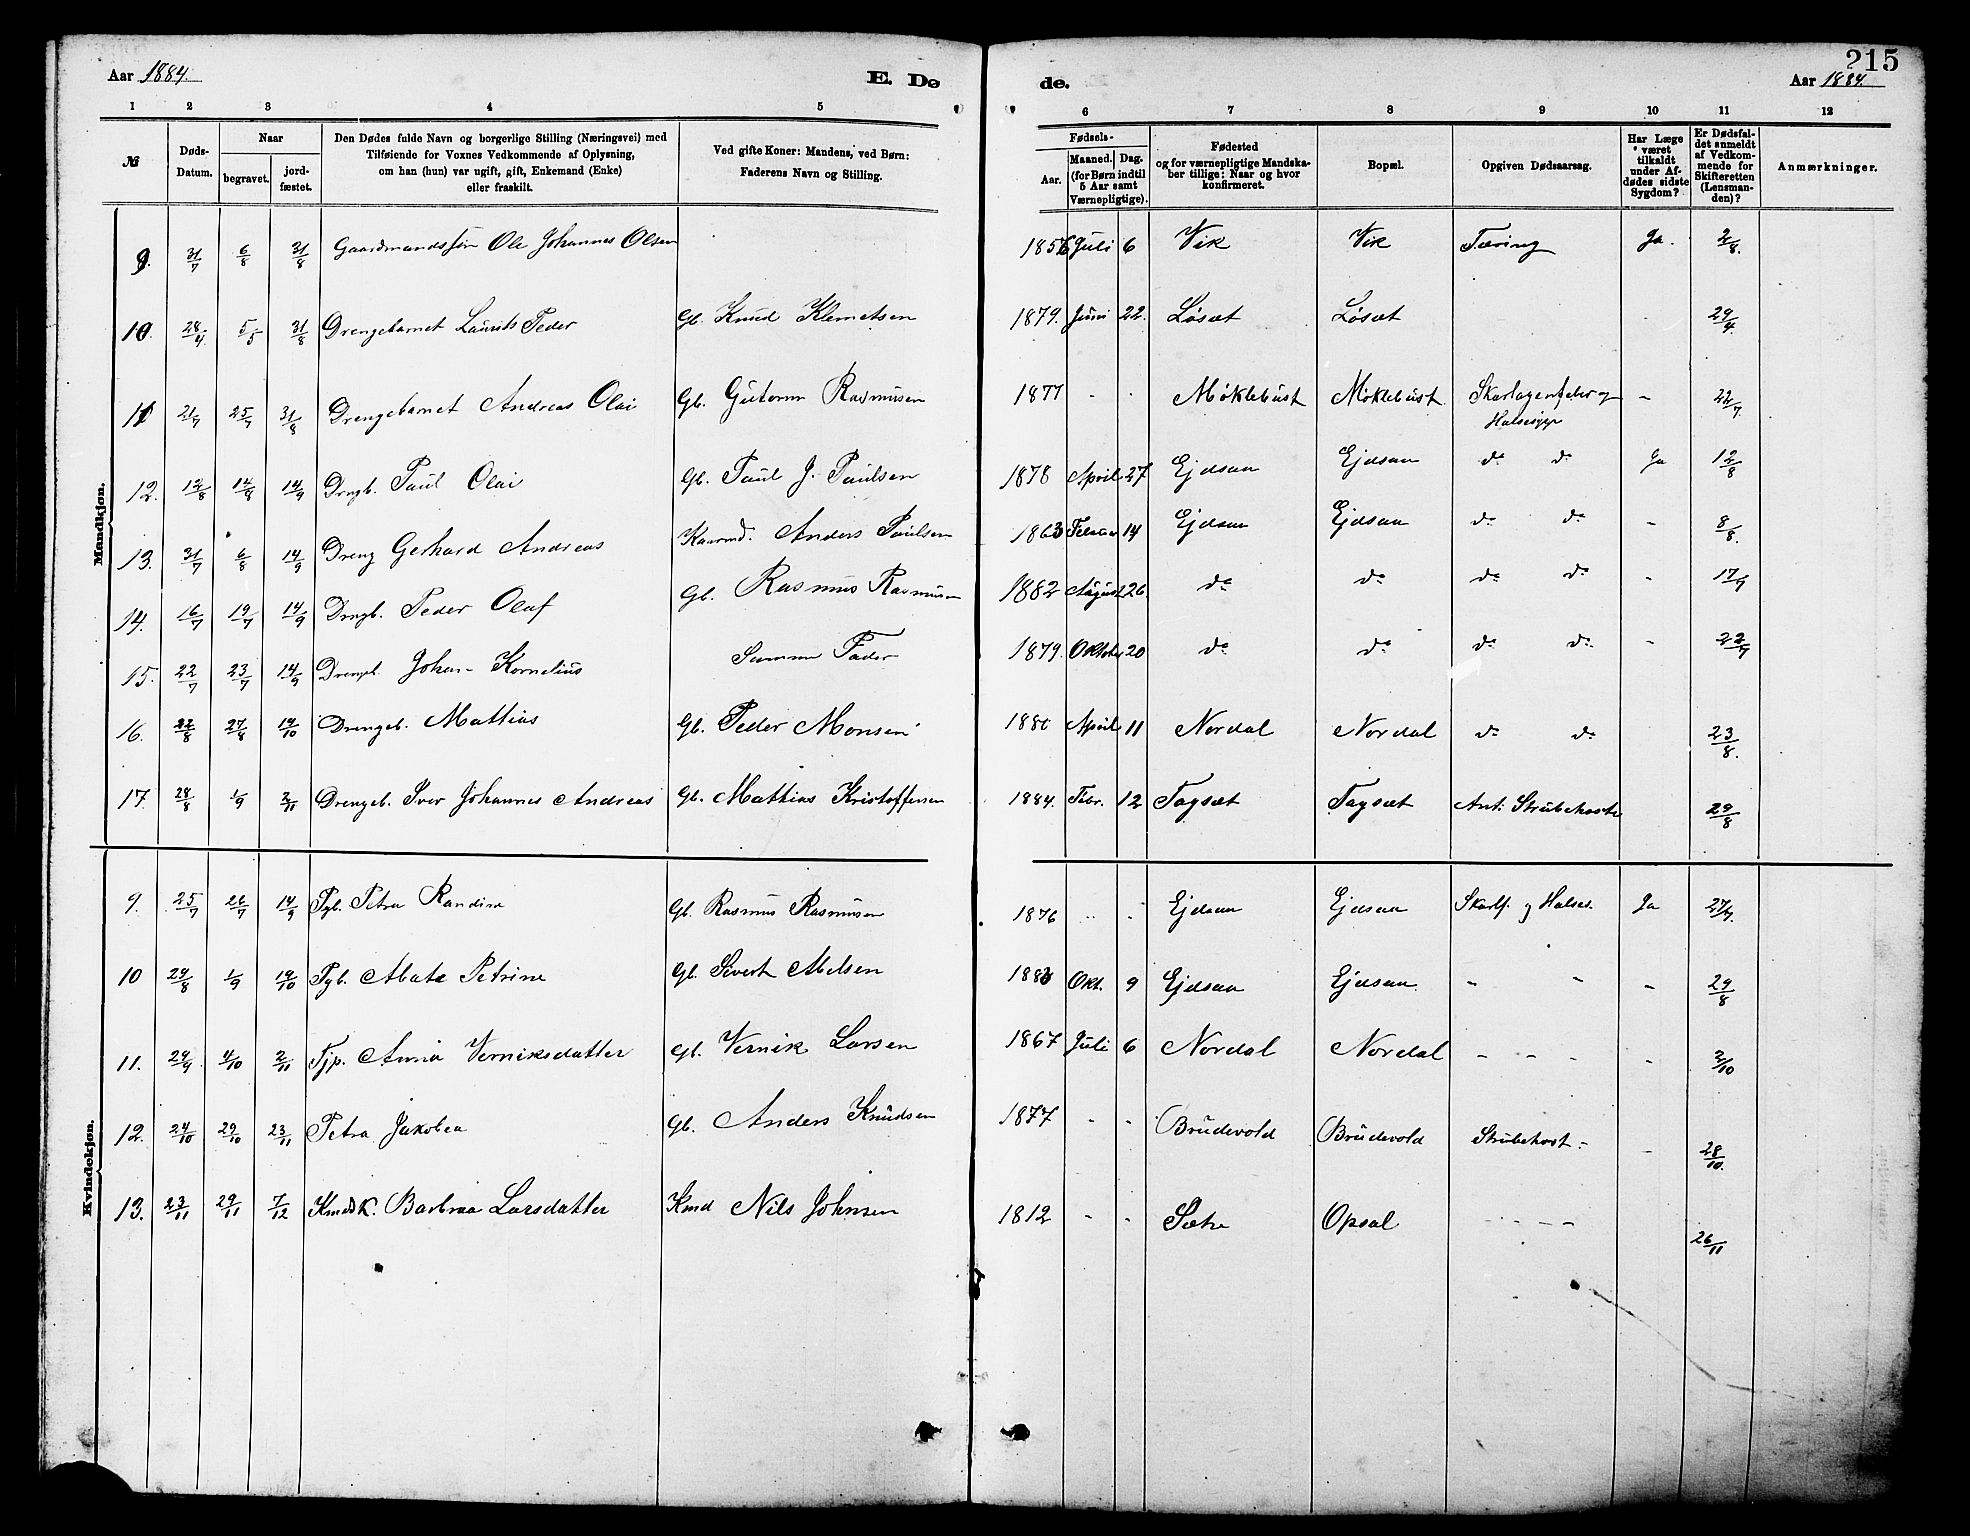 215
Aar 1884.
E. Dø
de.
Aar 1884.
1 2 3 4 5
6 7 8 9 10 11 12
№
Døds-Datum.
Naar
begravet.
jord-fæstet.
Den Dødes fulde Navn og borgerlige Stilling (Næringsvei) med
Tilføiende for Voxnes Vedkommende af Oplysning,
om han (hun) var ugift, gift, Enkemand (Enke)
eller fraskilt.
Ved gifte Koner: Mandens, ved Børn:
Faderens Navn og Stilling.
Fødsels-
Aar.
Maaned. Dag.
(for Børn indtil
5 Aar samt
Værnepligtige).
Fødested
og for værnepligtige Mandska-
ber tillige: Naar og hvor
konfirmeret.
Bopæl.
Opgiven Dødsaarsag.
Har Læge
været
tilkaldt
under Af-
dødes sidste
Sygdom?
Er Dødsfal-
det anmeldt
af Vedkom-
mende for
Skifteretten
(Lensman-
den)?
Anmærkninger.
Mandkjøn.
9. 31/7 6/8 31/8 Gaardmandssøn Ole Johannes Olsen 1856 Juli 6 Vik Vik Tæring Ja. 2/8.
10. 28/4 5/5 31/8 Drengebarnet Laurits Peder Gb. Knud Klemetsen 1879. Juni 22. Løsæt Løsæt 29/4.
11 21/7 25/7 31/8 Drengebarnet Andreas Olai Gb. Gutorm Rasmusen 1877 - - Møklebust Møklebust Skarlagensfeber og - 22/7.
Halsesyge
12. 12/8 14/8 14/9 Drngb. Paul Olai Gb. Paul J. Paulsen 1878 April 27 Ejdsaa Ejdsaa do do Ja 12/8
13. 31/7 6/8 14/9 Dreng Gerhard Andreas Kaarmd. Anders Paulsen 1863 Februar 14 Ejdsaa Ejdsaa do do - 8/8.
14. 16/7 19/7 14/9 Drngb. Peder Olaf Gb. Rasmus Rasmusen 1882 August 26. do do do do - 17/7
15. 22/7 23/7 14/9 Drengb. Johan Kornelius Samme Fader 1879. Oktober 20 do do do do - 22/7
16. 22/8 27/8 19/10 Drengeb. Mathias Gb. Peder Monsen 1880 April 11 Nordal Nordal do do 23/8.
17. 28/8 1/9 2/11 Drengeb. Iver Johannes Andreas Gb. Mathias Kristoffersen 1884. Febr. 12 Tagsæt Tagsæt Ant: Strubehoste 29/8
Kvindekjøn.
9. 25/7 26/7 14/9 Pgb. Petra Randine Gb. Rasmus Rasmusen 1876 - - Ejdsaa Ejdsaa Skarlf. og Halses. Ja 27/7.
10 29/8 1/9 19/10 Pgb. Petrine Gb. Sivert 1883 Okt. 9 Ejdsaa Ejdsaa. - - - 29/8
11. 29/9 4/10 2/11 Tjp. Anna Verniksdatter Gb. Vernik Larsen 1867 Juli 6 Nordal Nordal - - - - 2/10
12. 24/10 29/10 23/11 Petra Jakobea Gb. Anders Knudsen 1877 - - Brudevold Brudevold Strubehost - - 28/10.
13. 23/11 29/11 7/12 Kmdk. Barbraa Larsdatter Kmd Nils Johnsen 1812 - - Sætre Opsal - - - - 26/11